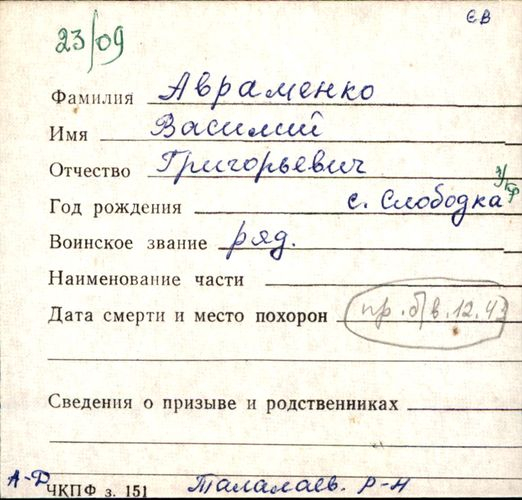 ЄВ
23/09
Фамилия Авраменко
Имя Василий
Отчество Григорьевич
Год рождения с. Слободка
Воинское звание ряд.
Наименование части
Дата смерти и место похорон пр. б/в. 12.43
Сведения о призыве и родственниках
А-Д ЧКПФ з. 151 Талалаев. р-н